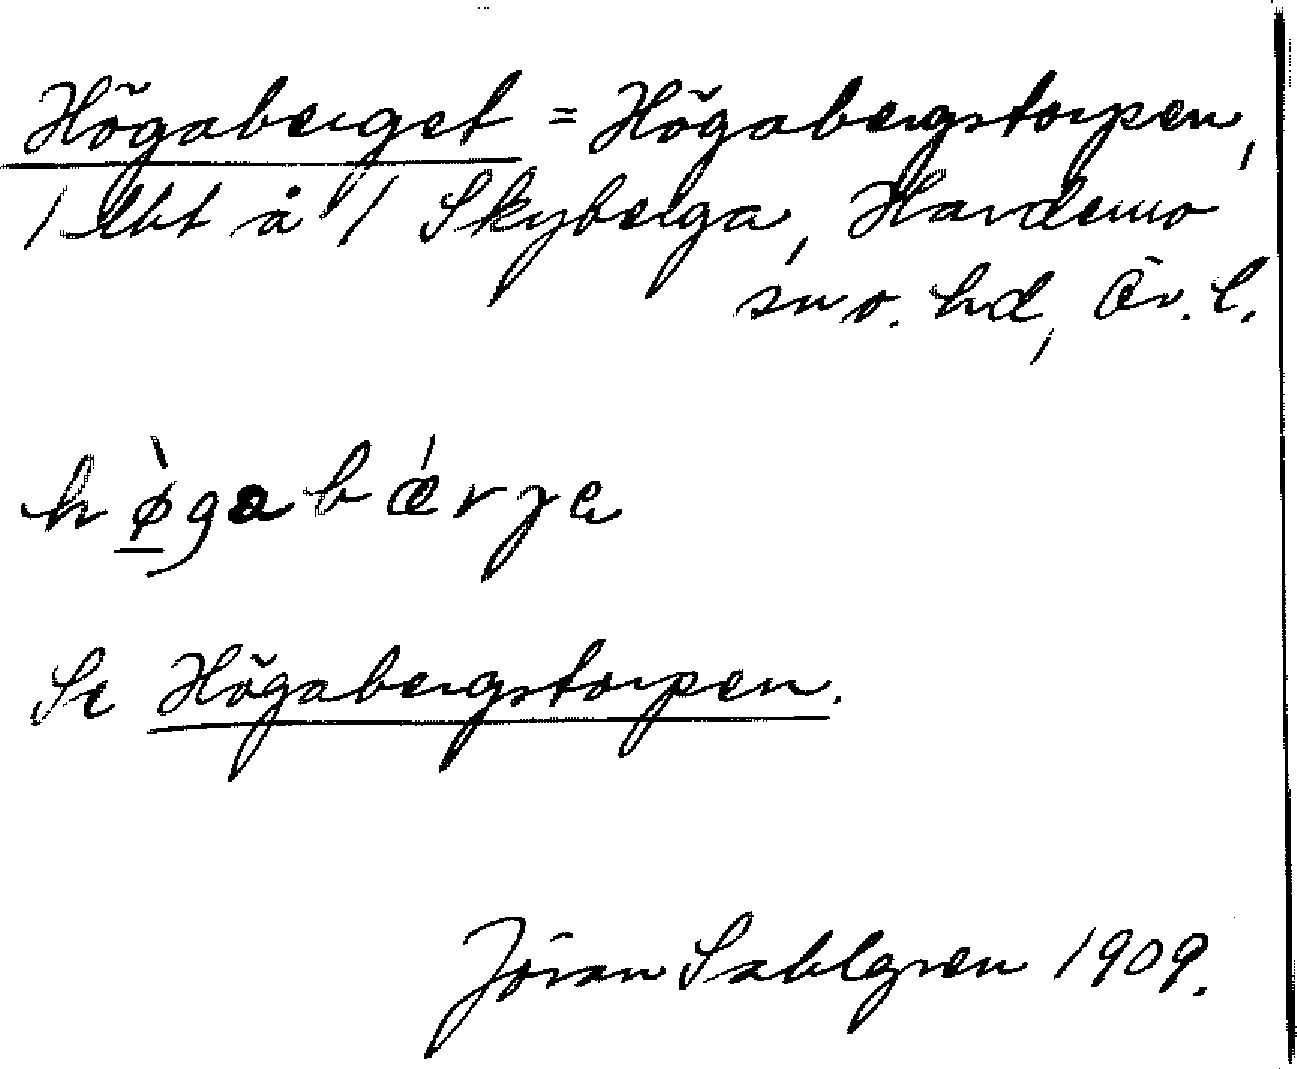 Högaberget = Högabergstorpen,
1 lht å 1 Skyberga, Hardemo
sn o. hd, Ör. l.
hø̀gabǽrjɐ
Se Högabergstorpen.
Jöran Sahlgren 1909.